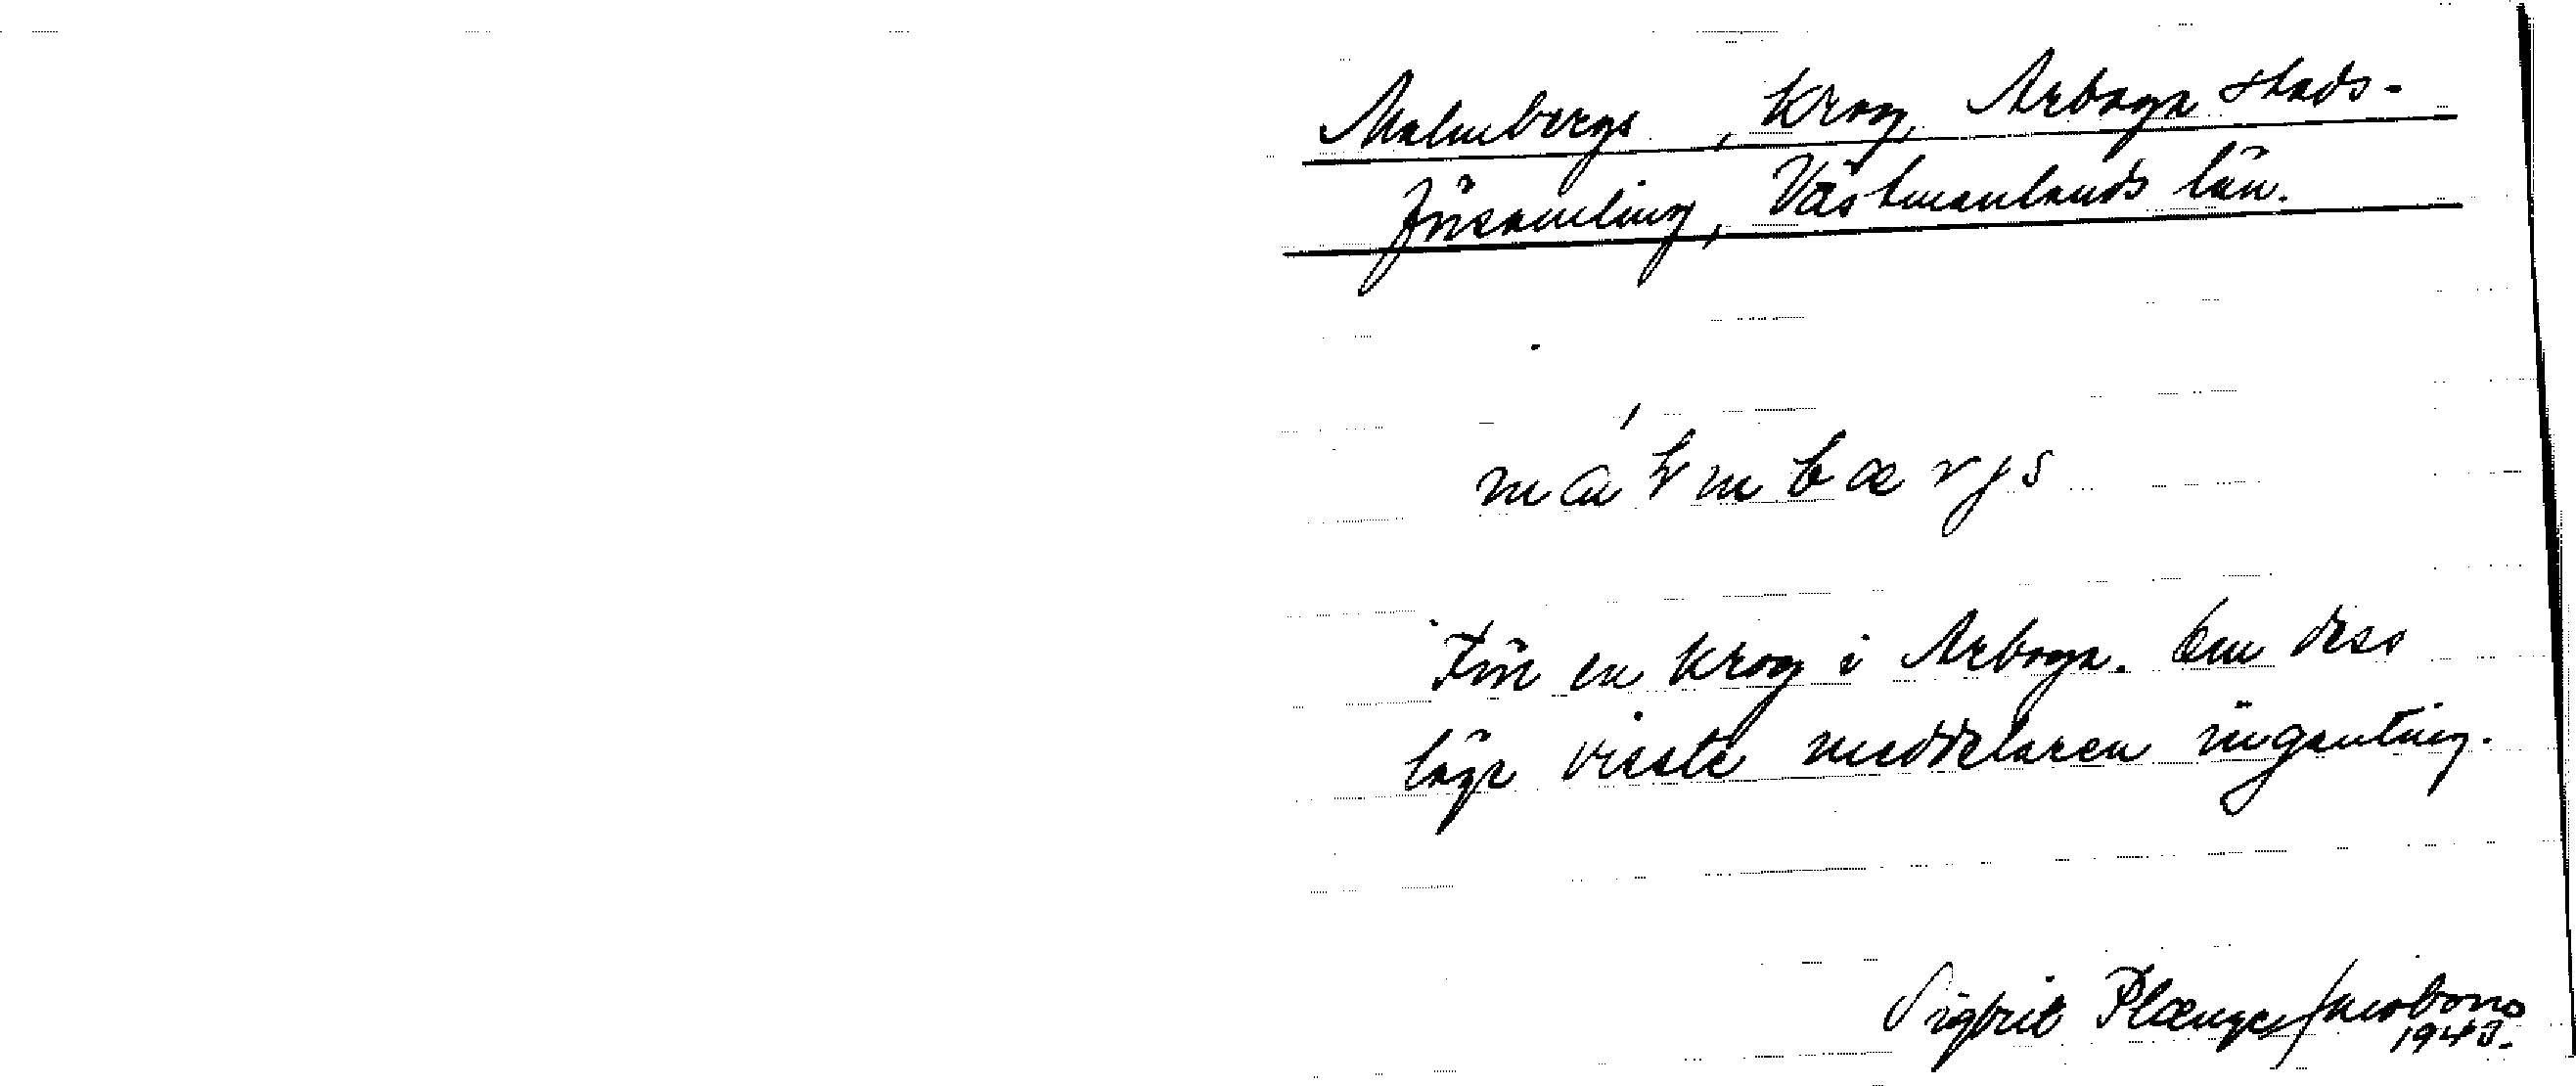 Malmbergs, krog, Arboga stads-
församling, Västmanlands län.
Förr en krog i Arboga. Om dess
läge visste meddelaren ingenting.
Sigbrit Plænge Jacobson
1943.